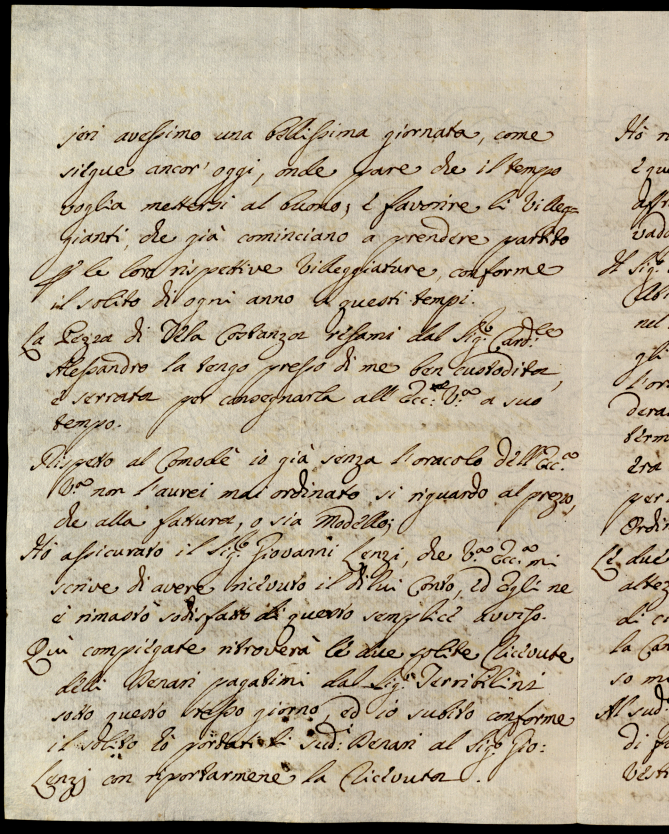 jeri avessimo una bellissima giornata, come
siegue ancor' oggi, onde pare che il tempo
voglia mettersi al buono; è favorire li Villeg=
gianti, che già cominciano a prendere partito
p le loro rispettive Villeggiature, conforme
il solito di ogni anno a questi tempi.
La Pezza di Tela Costanza resami dal Sig.e Card:le
Alessandro la tengo presso di me ben custodita,
è serrata per consegnarla all' Ecc:a V.a a suo
tempo.
Rispetto al Comodè io già senza l'oracolo dell' Ecc.a
V.a non l'aurei mai ordinato si riguardo al prezzo,
che alla fattura, o sia Modello;
Hò assicurato il Sig.e Giovanni Lenzi, che V.a Ecc.a mi
scrive di avere ricevuto il di lui Conto, ed Egli ne
è rimasto sodisfatto di questo semplice avviso.
Quì compiegate ritroverà le due solite Ricevute
delli Denari pagatimi dal Sig.e Terribilini
sotto questo stesso giorno, ed io subito conforme
il solito hò portati li sud: Denari al Sig.e Gio:
Lenzj con riportarmene la Ricevuta.
Hò
è que
vado
Il Sig.e
nel
gli
l'ora
derà
term
erà
per
Ordin
Le due
altez
di
la Can
so m
Al sud
di
Vesti